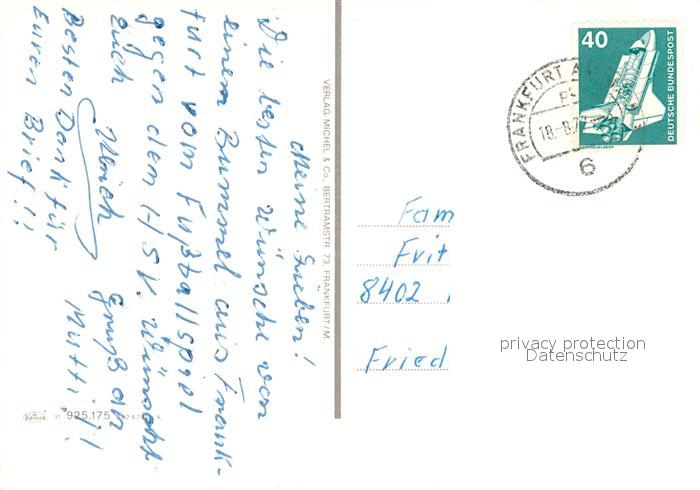 Meine Lieben!
Die besten Wünsche von
einem Bummel aus Frank-
furt vom Fußballspiel
gegen den HSV. Wünscht
Euch
Ulrich
Gruß an
Mutti!!
Besten Dank für
Euren Brief!!
VERLAG MICHEL & Co., BERTRAMSTR. 73, FRANKFURT/M.
925.175
40
DEUTSCHE BUNDESPOST
FRANKFURT AM
18.-8.
6
Fam
Frit
8402
Fried
privacy protection
Datenschutz